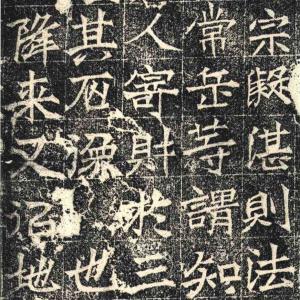 宗凝湛則法
常岳等謂知
人寄財於三
其石也
降来又沼地